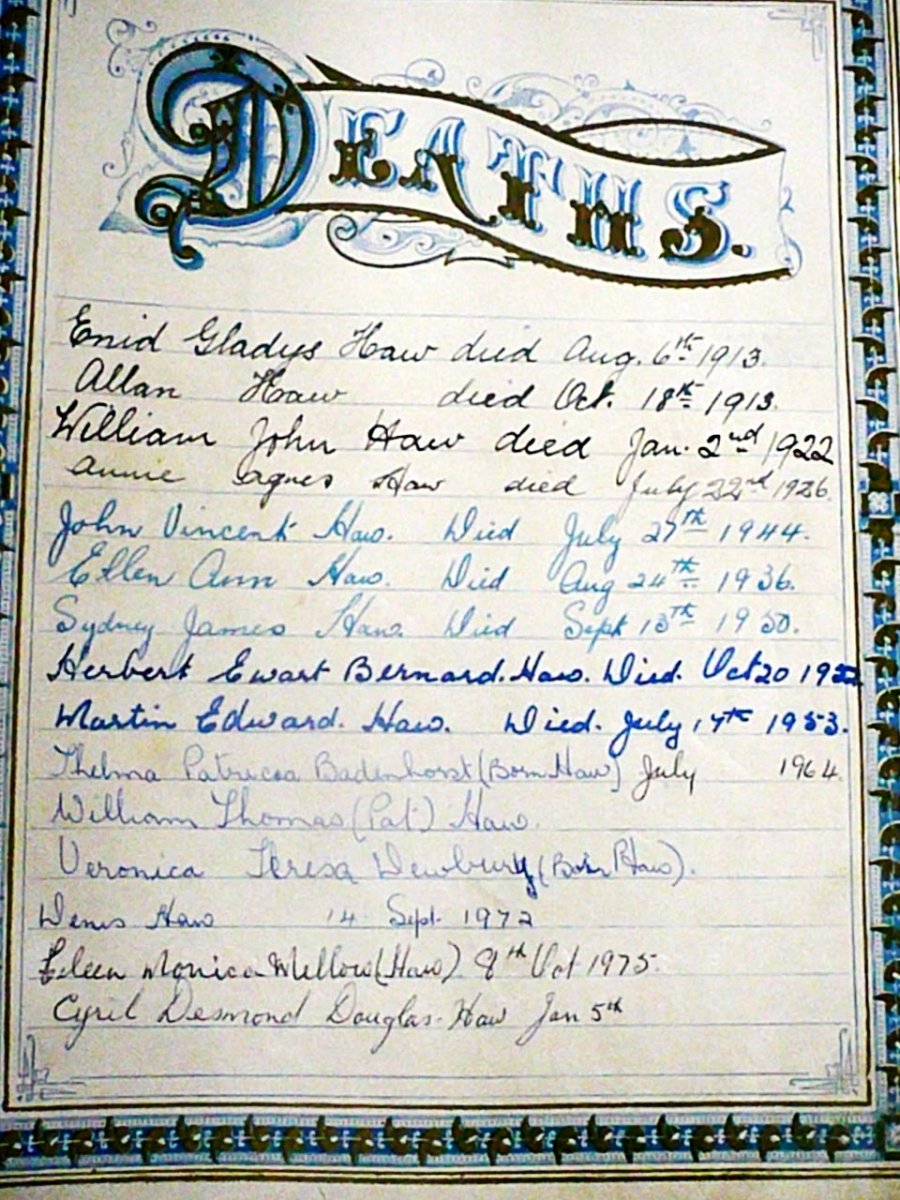 DEATHS.
Enid Gladys Haw died Aug. 6th 1913.
Allan Haw died Oct. 18th 1913.
William John Haw died Jan. 2nd 1922
Annie Agnes Haw died July 22nd 1926.
John Vincent Haw. Died July 27th 1944.
Ellen Ann Haw. Died Aug 24th 1936.
Sydney James Haw. Died Sept 13th 1950.
Herbert Ewart Bernard. Haw. Died. Oct 20
Martin Edward. Haw. Died. July 17th 1953.
Thelma Patricia Badenhorst (Born Haw) July 1964.
William Thomas (Pat) Haw.
Veronica Teresa Dewbury (Born Haw).
Denis Haw 14 Sept. 1972
Eileen Monica Mellow (Haw) 8th Oct 1975.
Cyril Desmond Douglas. Haw Jan 5th